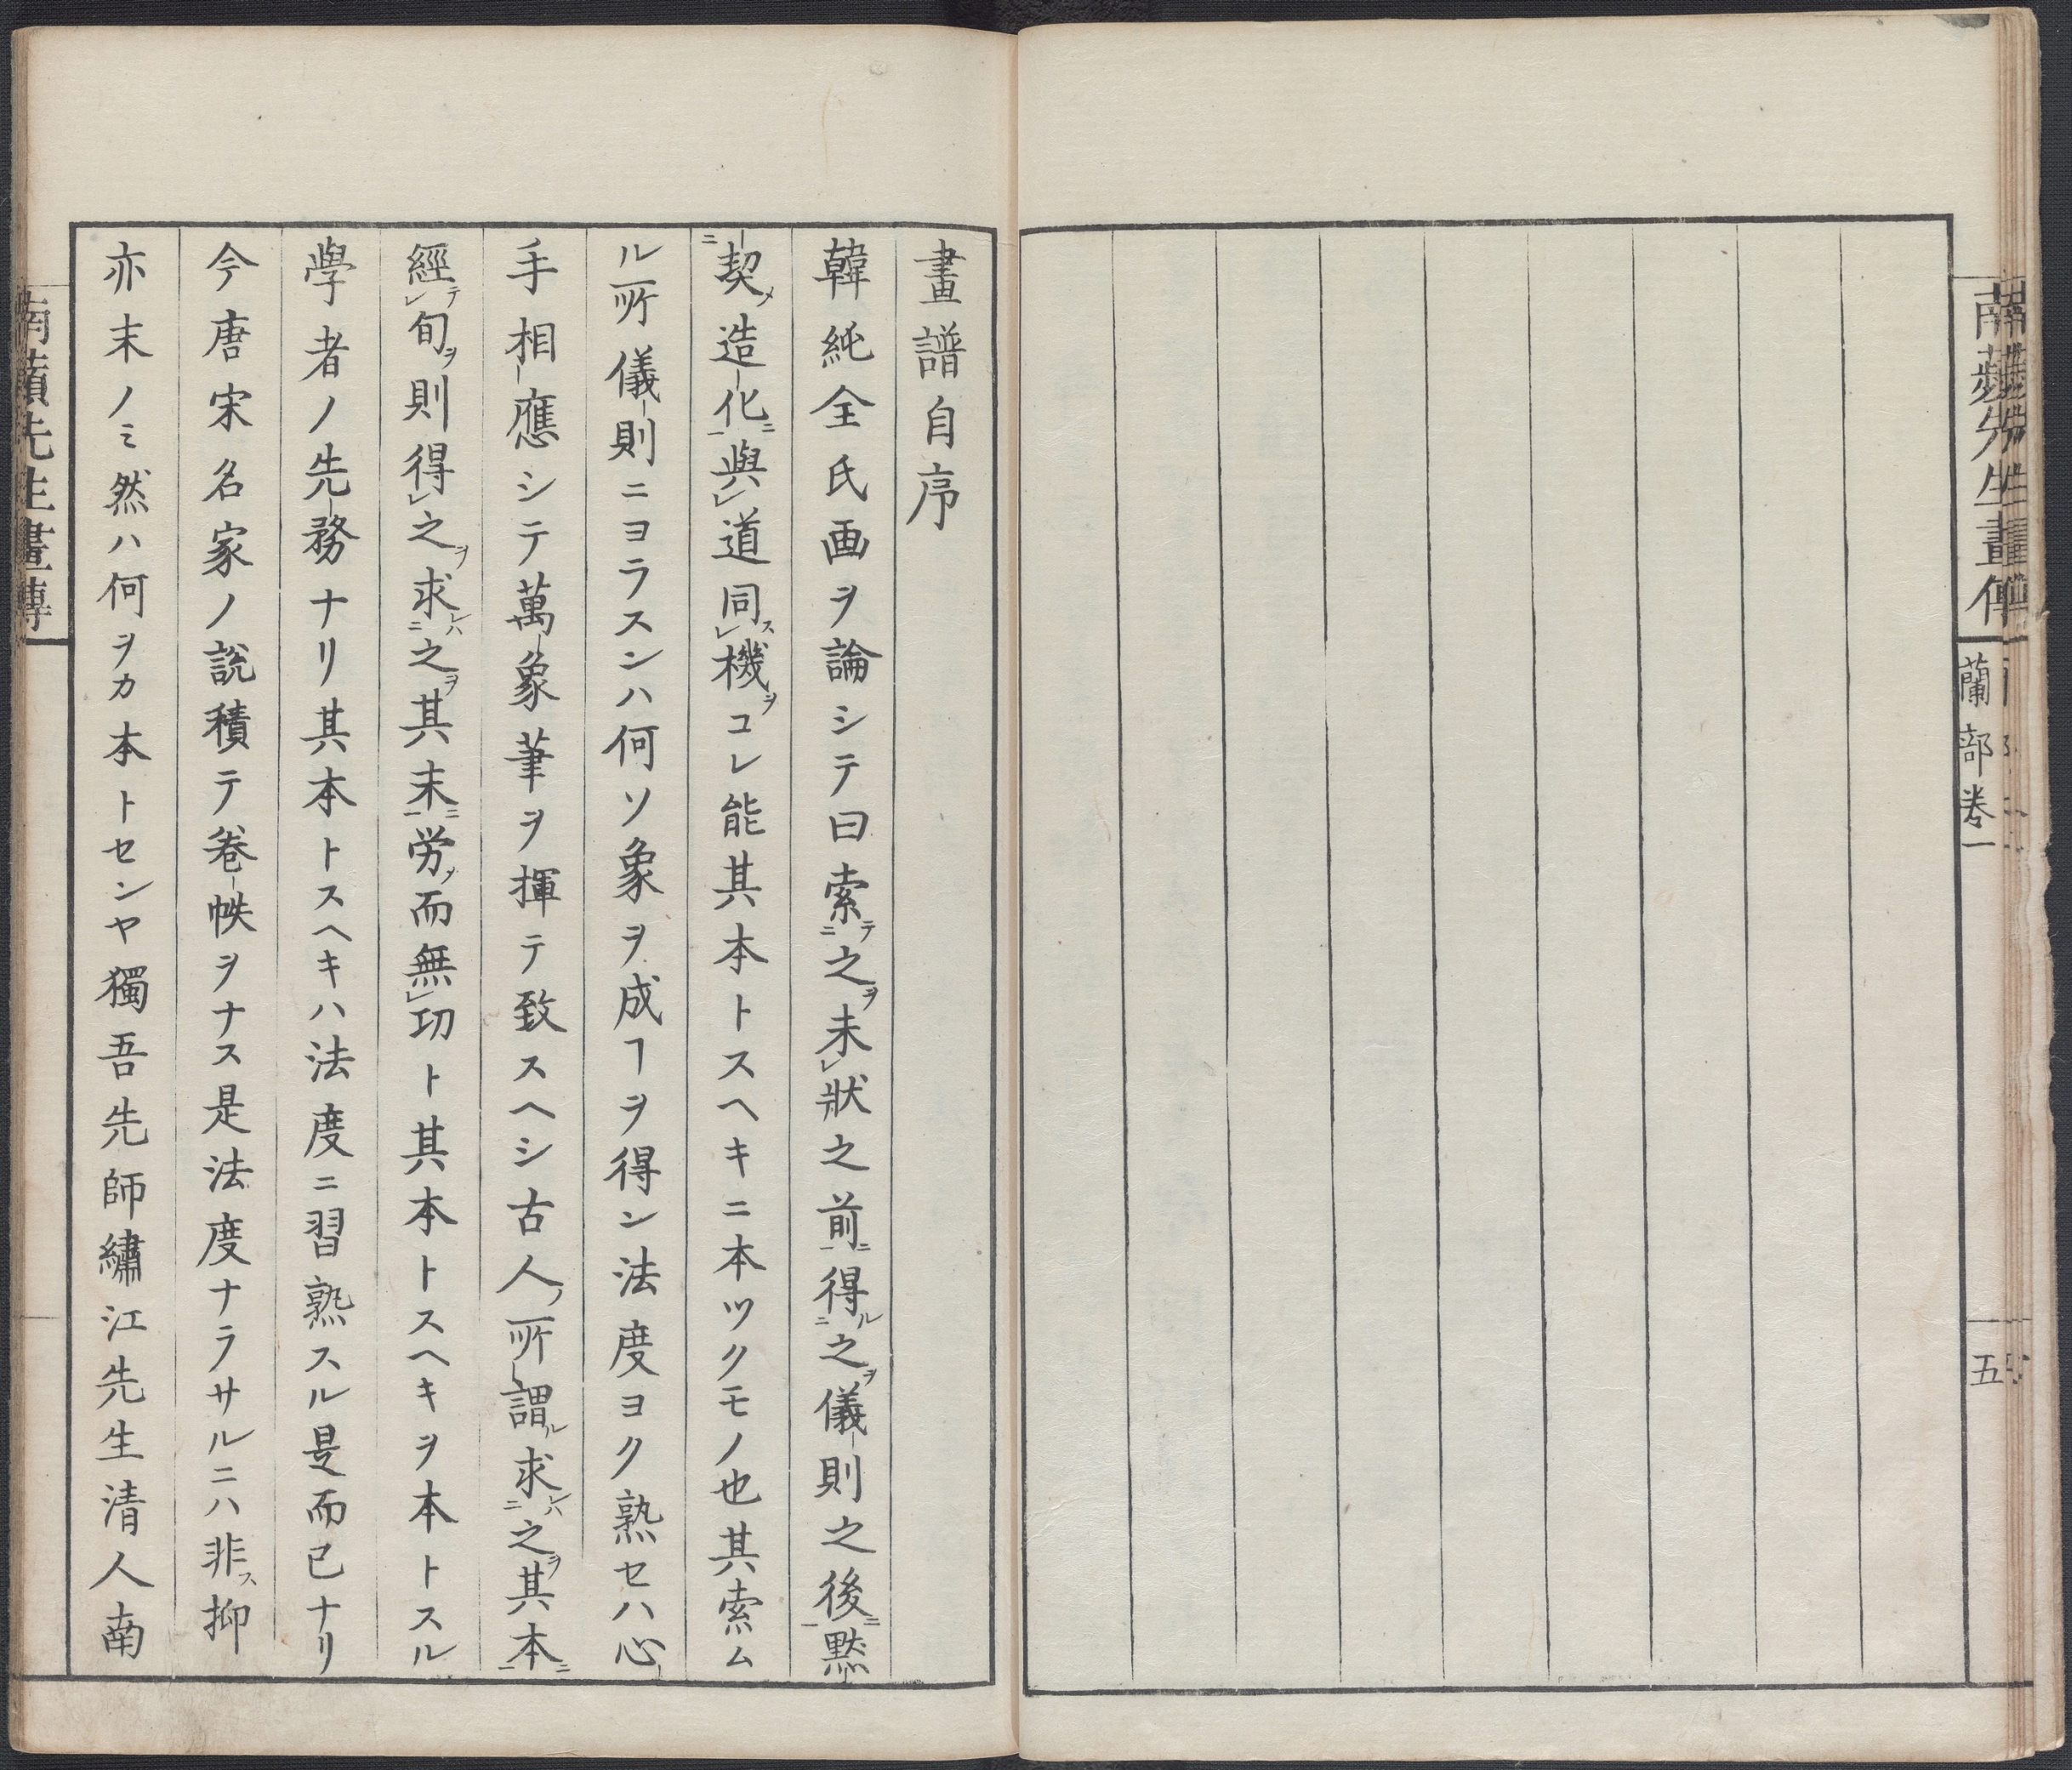 蘭部卷一
五
畫譜自序
韓純全氏画ヲ論シテ曰索テ二之ヲ未レ狀之前ニ一得ル二之ヲ儀則之後ニ一黙
契メ二造化ニ一與レ道同スレ機ヲコレ能其本トスヘキニ本ツクモノ也其索ム
ル所儀則ニヨラスンハ何ソ象ヲ成ヿヲ得ン法度ヨク熟セハ心
手相應シテ萬象筆ヲ揮テ致スヘシ古人ノ所謂ル求レハ二之ヲ其本ニ一
經テレ旬ヲ則得レ之ヲ求レハ二之ヲ其末ニ一労ノ而無レ功ト其本トスヘキヲ本トスル
學者ノ先務ナリ其本トスヘキハ法度ニ習熟スル是而已ナリ
今唐宋名家ノ説積テ卷帙ヲナス是法度ナラサルニハ非ス抑
亦末ノミ然ハ何ヲカ本トセンヤ獨吾先師繡江先生清人南
先生畫傳